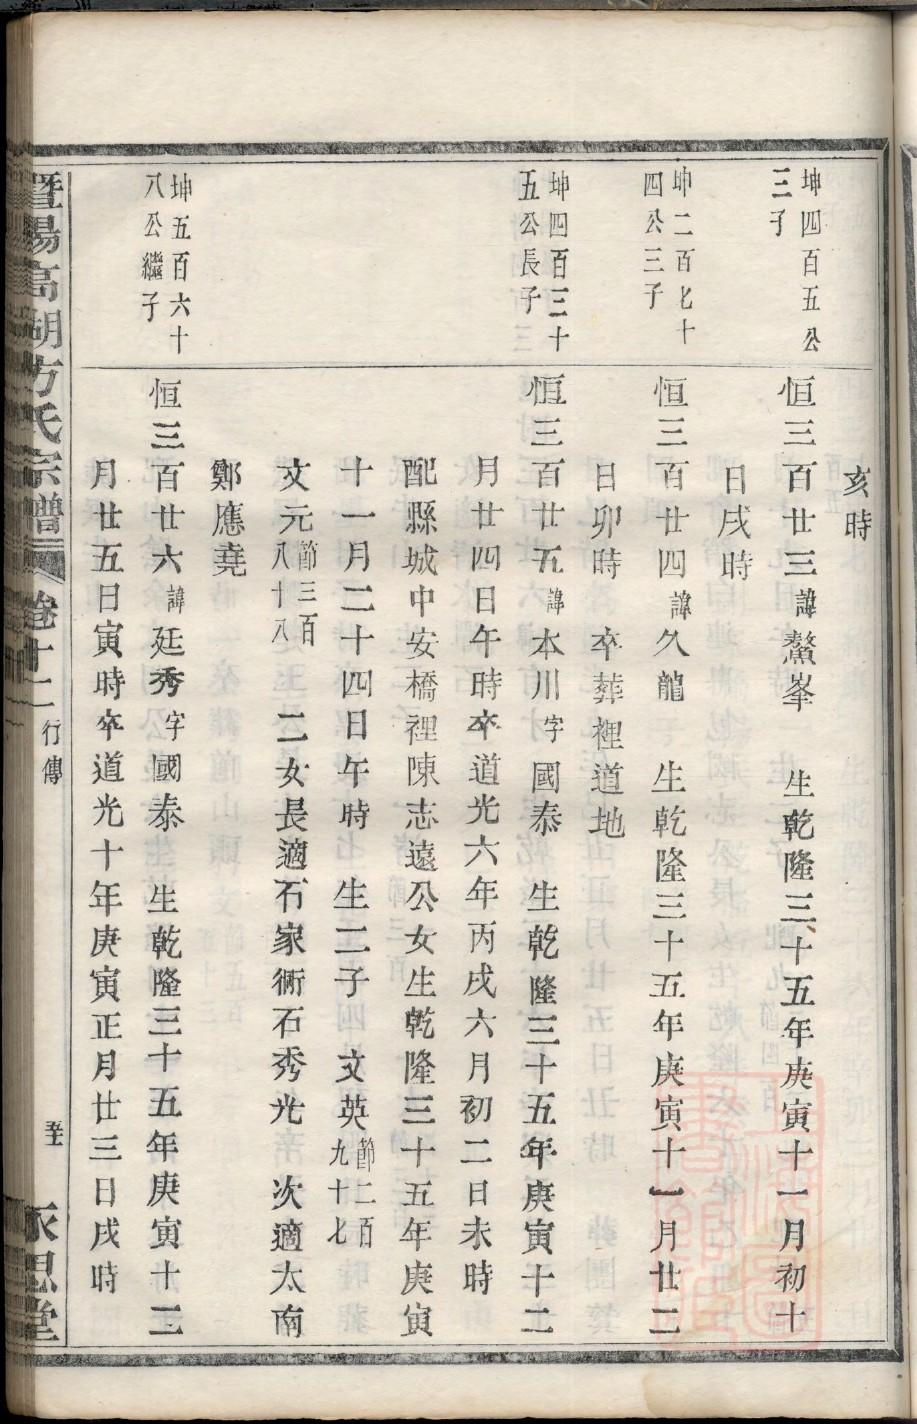 亥時
坤四百五公
三子
恒三百廿三諱鰲峯　生乾隆三十五年庚寅十一月初十
日戌時
坤二百七十
四公三子
恒三百廿四諱久龍　生乾隆三十五年庚寅十一月廿二
日卯時　卒葬裡道地
坤四百三十
五公長子
恒三百廿五諱本川字國泰　生乾隆三十五年庚寅十二
月廿四日午時卒道光六年丙戌六月初二日未時
配縣城中安橋裡陳志遠公女生乾隆三十五年庚寅
十一月二十四日午時　生二子　文英節二百九十七
文元節三百八十八　二女長適石家衕石秀光　次適太南
鄭應堯
坤五百六十
八公繼子
恒三百廿六諱廷秀字國泰　生乾隆三十五年庚寅十二
月廿五日寅時卒道光十年庚寅正月廿三日戌時
暨陽高湖方氏宗譜　卷十一　行傳　永思堂